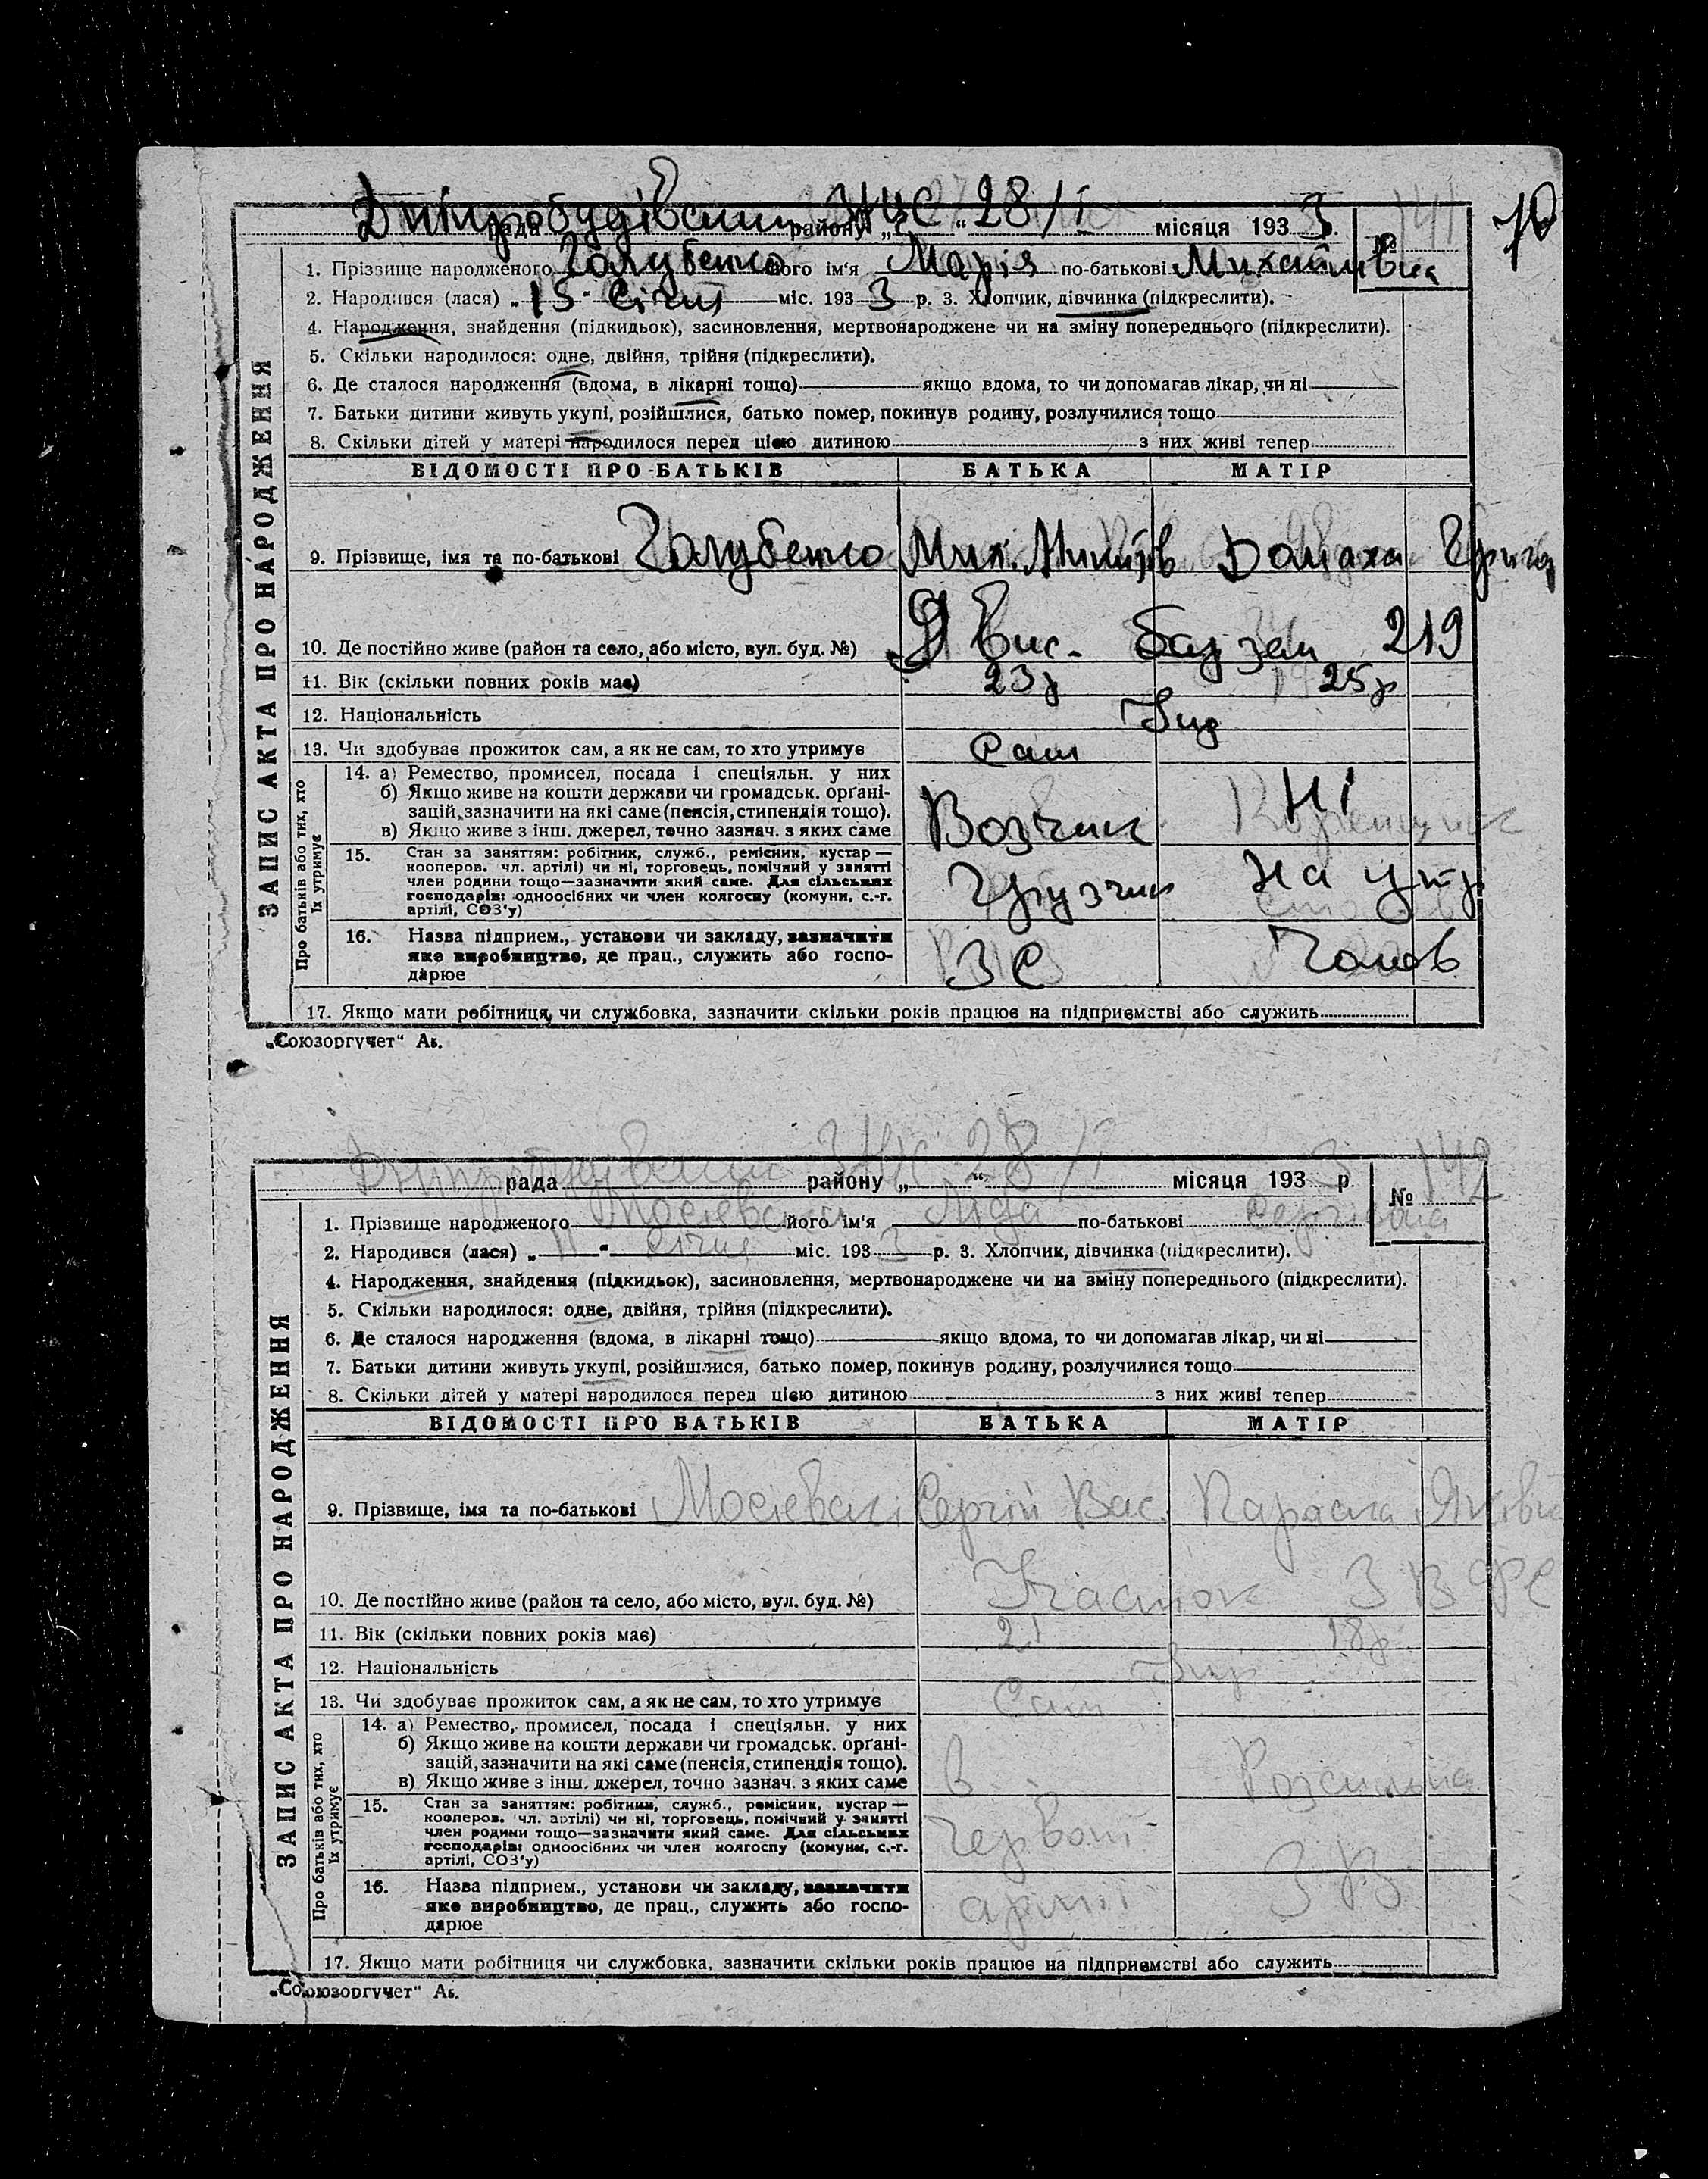 Дніпробудівськи ЗАЦС 28/I
рада району „ “ місяця 1933 р. № 141 70
1. Прізвище народженого Голубенко його ім'я Марія по-батькові Михайлівна
2. Народився (лася) „15“ Січня міс. 1933 р. 3. Хлопчик, дівчинка (підкреслити).
4. Народження, знайдення (підкидьок), засиновлення, мертвонароджене чи на зміну попереднього (підкреслити).
5. Скільки народилося: одне, двійня, трійня (підкреслити).
6. Де сталося народження (вдома, в лікарні тощо) якщо вдома, то чи допомагав лікар, чи ні
7. Батьки дитини живуть укупі, розійшлися, батько помер, покинув родину, розлучилися тощо
8. Скільки дітей у матері народилося перед цією дитиною з них живі тепер
ЗАПИС АКТА ПРО НАРОДЖЕННЯ
ВІДОМОСТІ ПРО БАТЬКІВ БАТЬКА МАТІР
9. Прізвище, імя та по-батькові Голубенко Мих. Домаха
10. Де постійно живе (район та село, або місто, вул. буд. №) вис. зем 219
11. Вік (скільки повних років має) 23р 25р
12. Національність
13. Чи здобуває прожиток сам, а як не сам, то хто утримує Сам
Про батьків або тих, хто їх утримує
14. а) Ремество, промисел, посада і спеціяльн. у них
б) Якщо живе на кошти держави чи громадськ. орґані-
зацій, зазначити на які саме (пенсія, стипендія тощо).
в) Якщо живе з інш. джерел, точно зазнач. з яких саме Возчик Ні
15. Стан за заняттям: робітник, служб., ремісник, кустар —
кооперов. чл. артілі) чи ні, торговець, помічний у занятті
член родини тощо—зазначити який саме. Для сільських
господарів: одноосібних чи член колгоспу (комуни, с.-г.
артілі, СОЗ'у) Грузчик На утр.
16. Назва підприєм., установи чи закладу, зазначити
яке виробництво, де прац., служить або госпо-
дарює ЗС Чолов.
17. Якщо мати робітниця чи службовка, зазначити скільки років працює на підприємстві або служить
„Союзоргучет“ Ав.
Дніпробудівськи ЗАЦС 28/I
рада району „ “ місяця 1933 р. № 142
1. Прізвище народженого Мосієвська його ім'я Ліда по-батькові Сергіївна
2. Народився (лася) „11“ січня міс. 1933 р. 3. Хлопчик, дівчинка (підкреслити).
4. Народження, знайдення (підкидьок), засиновлення, мертвонароджене чи на зміну попереднього (підкреслити).
5. Скільки народилося: одне, двійня, трійня (підкреслити).
6. Де сталося народження (вдома, в лікарні тощо) якщо вдома, то чи допомагав лікар, чи ні
7. Батьки дитини живуть укупі, розійшлися, батько помер, покинув родину, розлучилися тощо
8. Скільки дітей у матері народилося перед цією дитиною з них живі тепер
ЗАПИС АКТА ПРО НАРОДЖЕННЯ
ВІДОМОСТІ ПРО БАТЬКІВ БАТЬКА МАТІР
9. Прізвище, імя та по-батькові Мосієвські Сергій Вас. Параска Яківна
10. Де постійно живе (район та село, або місто, вул. буд. №)
11. Вік (скільки повних років має) 21 18р
12. Національність
13. Чи здобуває прожиток сам, а як не сам, то хто утримує Сам
Про батьків або тих, хто їх утримує
14. а) Ремество, промисел, посада і спеціяльн. у них
б) Якщо живе на кошти держави чи громадськ. орґані-
зацій, зазначити на які саме (пенсія, стипендія тощо).
в) Якщо живе з інш. джерел, точно зазнач. з яких саме В Розсильна
15. Стан за заняттям: робітник, служб., ремісник, кустар —
кооперов. чл. артілі) чи ні, торговець, помічний у занятті
член родини тощо—зазначити який саме. Для сільських
господарів: одноосібних чи член колгоспу (комуни, с.-г.
артілі, СОЗ'у) Червон
16. Назва підприєм., установи чи закладу, зазначити
яке виробництво, де прац., служить або госпо-
дарює армії
17. Якщо мати робітниця чи службовка, зазначити скільки років працює на підприємстві або служить
„Союзоргучет“ Ав.